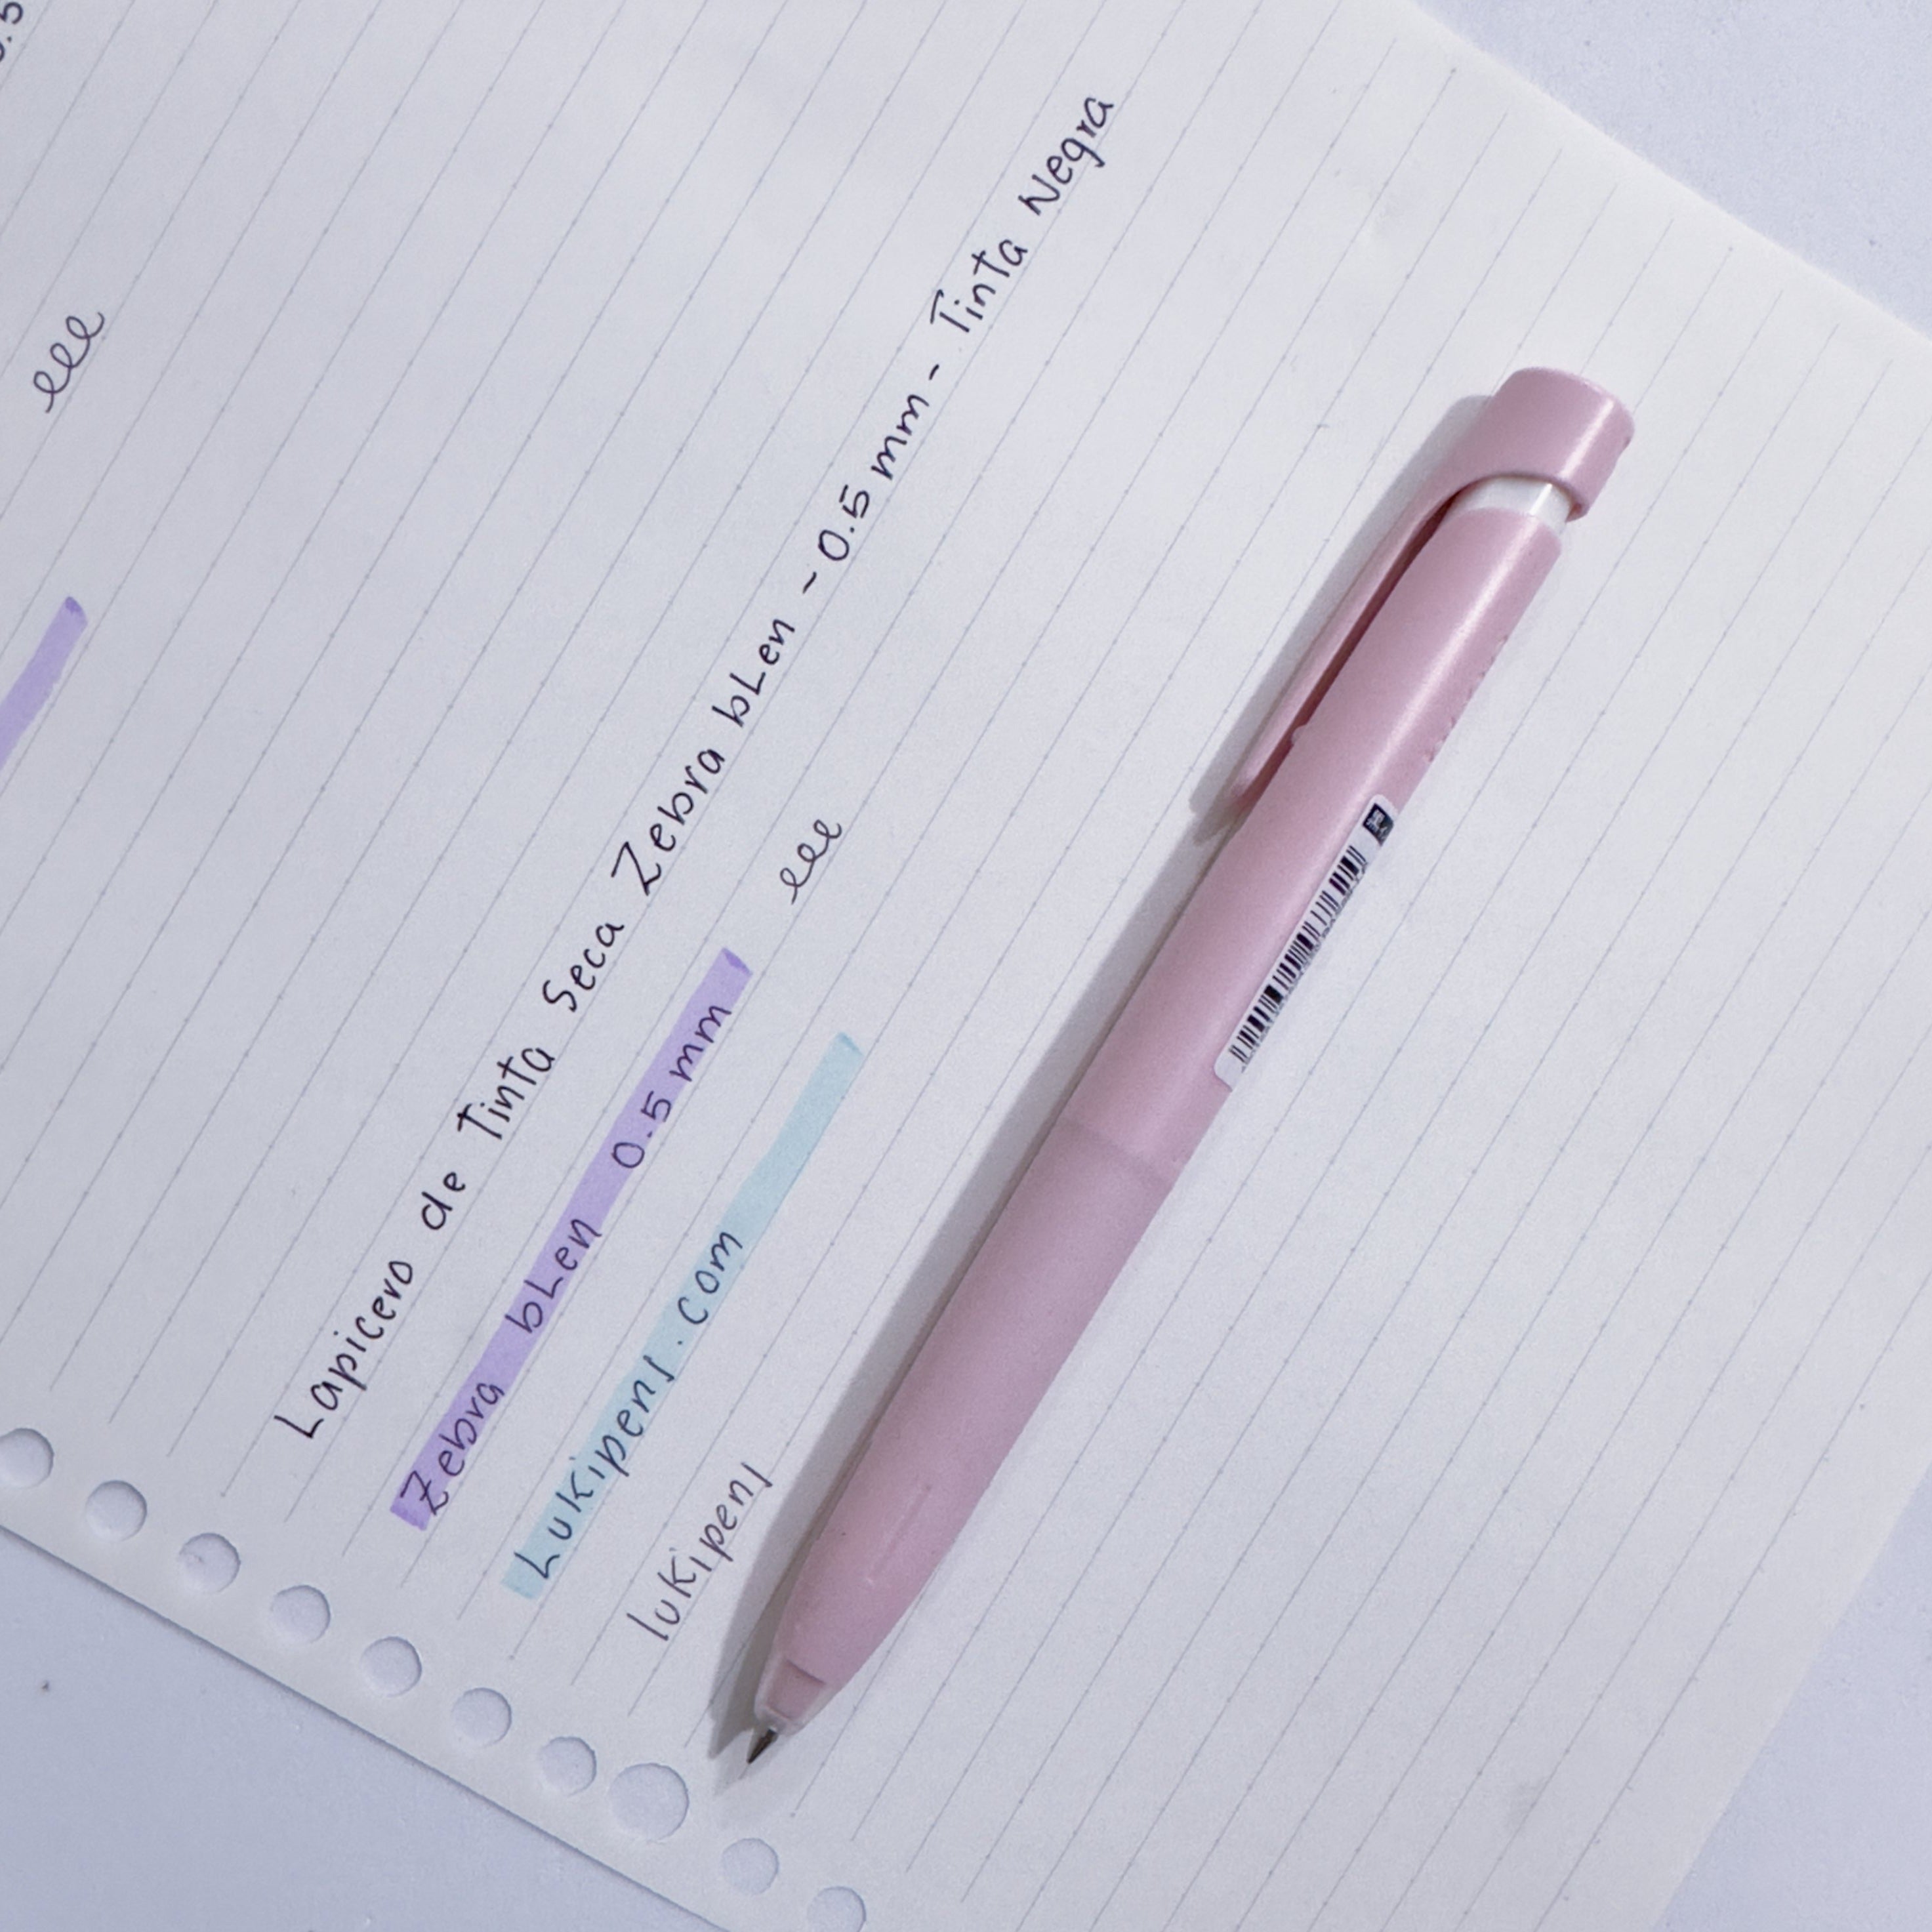 eee
Lapicero de Tinta Seca Zebra bLen - 0.5 mm - Tinta Negra
Zebra bLen 0.5 mm eee
Lukipens.com
lukipens